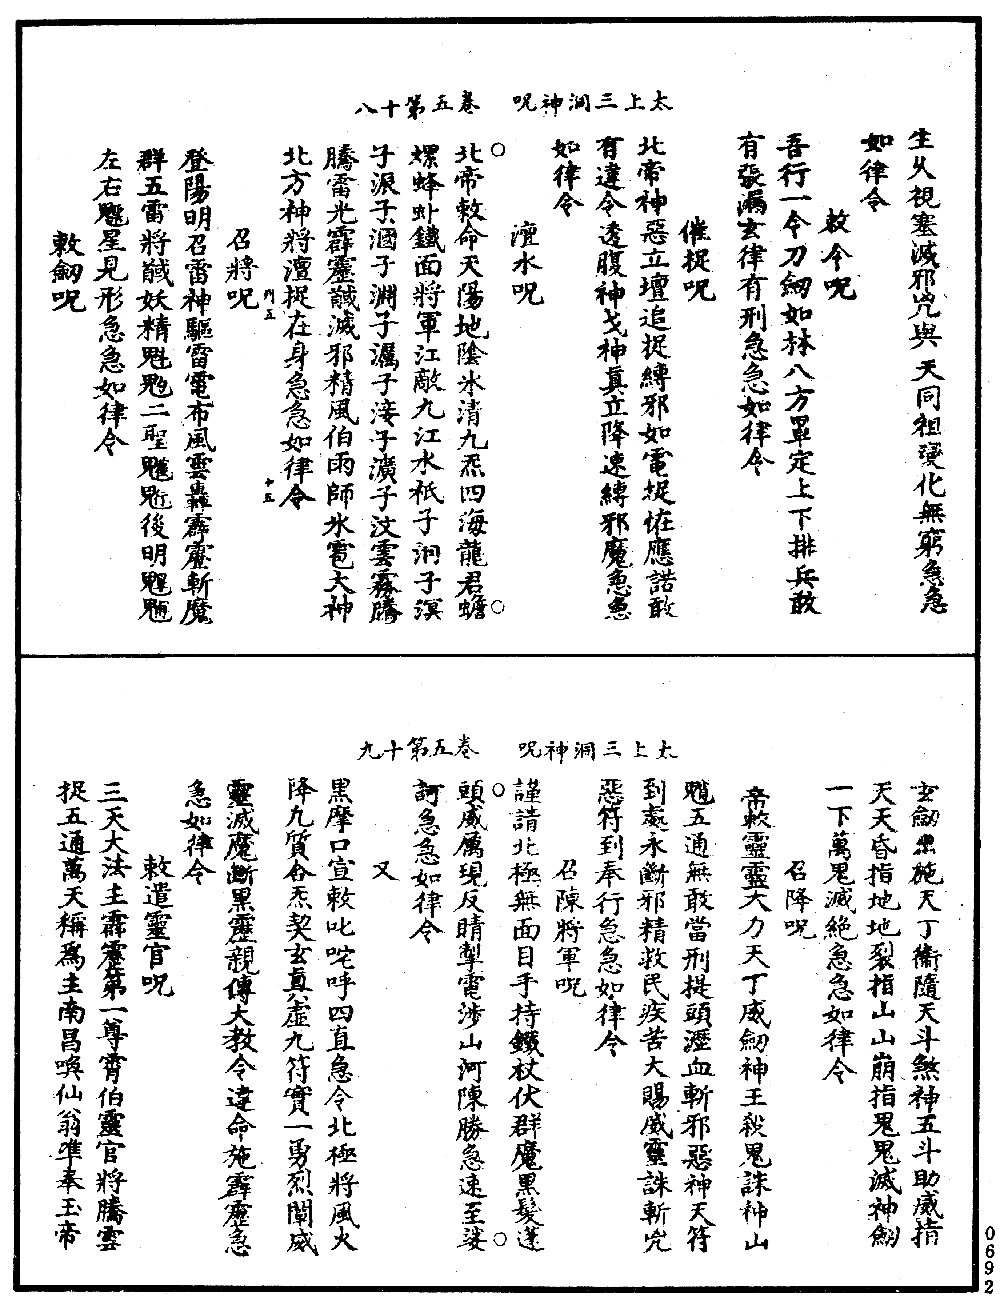 太上三洞神呪　卷五第十八
生久視塞滅邪兇與天同祖變化無窮急急
如律令
敕令呪
吾行一令刀劒如林八方罩定上下排兵敢
有張漏玄律有刑急急如律令
催捉呪
北帝神惡立壇追捉縛邪如電捉恠應諾敢
有違令透腹神戈神真立降速縛邪魔急急
如律令
澶水呪
北帝敕命天陽地陰氷清九炁四海龍君蟾
螺蜂虯鐵面將軍江敵九江水祇子泂子溟
子派子溷子淵子漍子淒子瀇子汶雲霧騰
騰雷光霹靂馘滅邪精風伯雨師氷雹大神
北方神將澶捉在身急急如律令
召將呪
登陽明召雷神驅雷電布風雲轟霹靂斬魔
群五雷將馘妖精魁䰢二聖魓䰫後明魒魍
左右魒星見形急急如律令
敕劒呪
太上三洞神呪　卷五第十九
玄劒黑施天丁衛隨天斗煞神五斗助威指
天天昏指地地裂指山山崩指鬼鬼滅神劒
一下萬鬼滅絕急急如律令
召降呪
帝敕靈靈大力天丁威劒神王殺鬼誅神山
魈五通無敢當刑提頭瀝血斬邪惡神天符
到處永斷邪精救民疾苦大賜威靈誅斬兇
惡符到奉行急急如律令
召陳將軍呪
謹請北極無面目手持鐵杖伏群魔黑髮蓬
頭威厲現反睛掣電涉山河陳勝急速至娑
訶急急如律令
又
黑摩口宣敕叱咤呼四直急令北極將風火
降九質合炁契玄真虛九符實一勇烈闡威
靈滅魔斷黑靂親傳大教令違命施霹靂急
急如律令
敕遣靈官呪
三天大法主霹靂第一尊霄伯靈官將騰雲
捉五通萬天稱爲主南昌喚仙翁準奉玉帝
0692